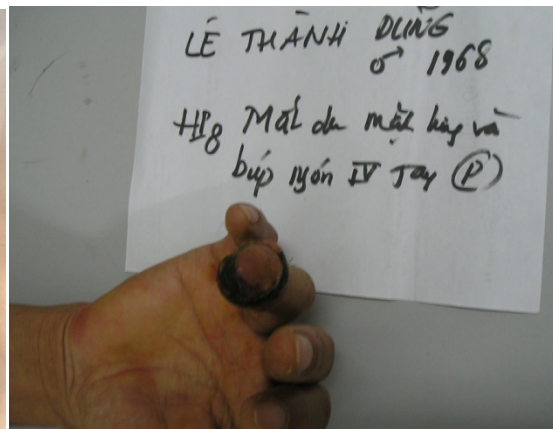 LÊ THÀNH DŨNG
♂ 1968
Mất da mặt lưng và
búp ngón IV Tay (P)